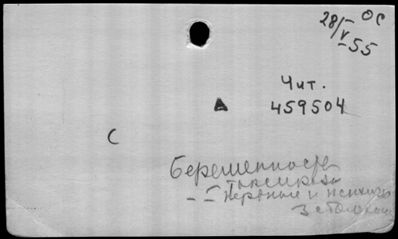 28/V-55 ОС
Чит.
459504
С
Беременность
Токсикозы
-"- Нервные и психич.